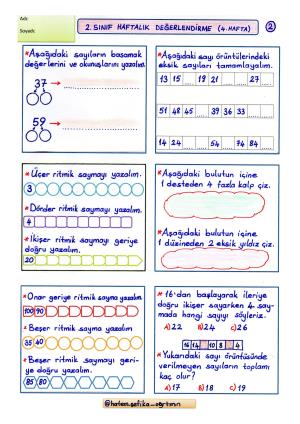 Adı:
Soyadı:
2. SINIF HAFTALIK DEĞERLENDİRME (4. HAFTA)
2
* Aşağıdaki sayıların basamak
değerlerini ve okunuşlarını yazalım.
37
59
* Aşağıdaki sayı örüntülerindeki
eksik sayıları tamamlayalım.
13 15 19 21 27
51 48 45 39 36 33
14 24 54 74 84
* Üçer ritmik saymayı yazalım.
3
* Dörder ritmik saymayı yazalım.
4
* İkişer ritmik saymayı geriye
doğru yazalım.
20
* Aşağıdaki bulutun içine
1 desteden 4 fazla kalp çiz.
* Aşağıdaki bulutun içine
1 düzineden 2 eksik yıldız çiz.
* Onar geriye ritmik sayma yazalım
100 90
* Beşer ritmik sayma yazalım
35 40
* Beşer ritmik saymayı geri-
ye doğru yazalım.
85 80
* 16'dan başlayarak ileriye
doğru ikişer sayarken 4. say-
mada hangi sayıyı söyleriz.
A) 22 B) 24 C) 26
16 14 10 8 4
* Yukarıdaki sayı örüntüsünde
verilmeyen sayıların toplamı
kaç olur?
A) 17 B) 18 C) 19